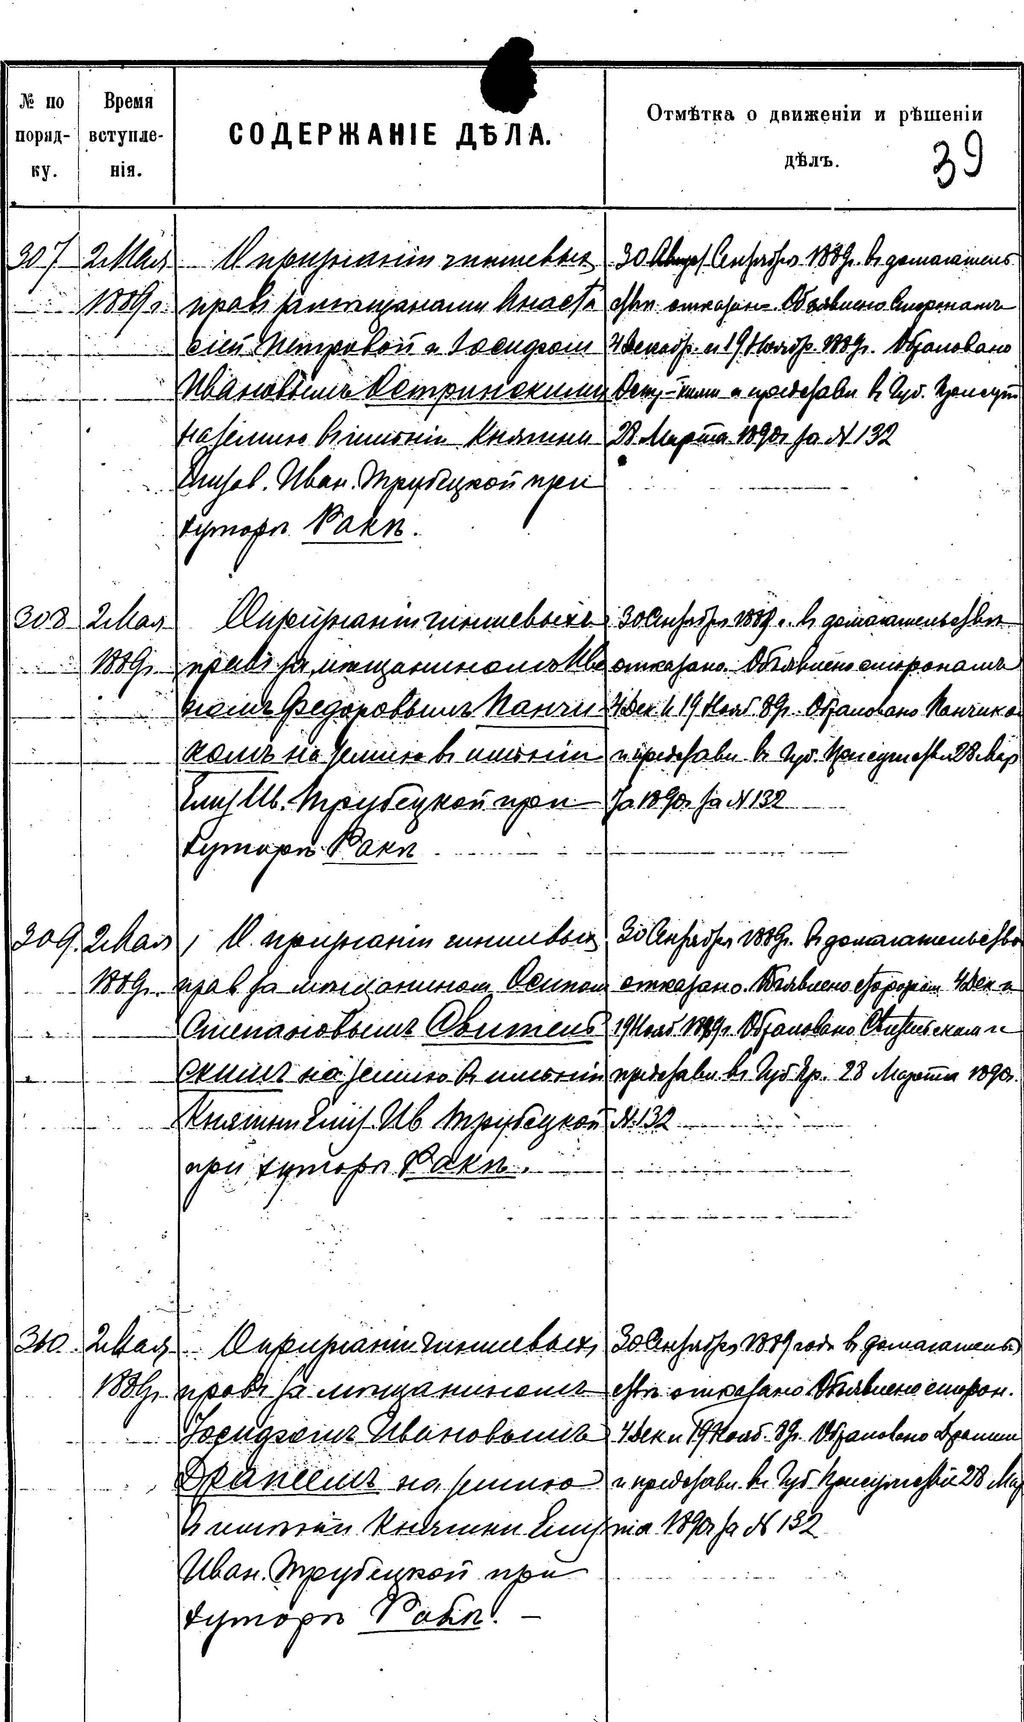 № по поряд- ку.
Время вступле- нія.
СОДЕРЖАНІЕ ДѢЛА.
Отмѣтка о движеніи и рѣшеніи дѣлъ.
39
307
2 Мая
1889 г.
О признаніи чиншевых
правъ за мѣщанами Анаста
сіей Петровой и Іосифом
Ивановымъ Остринскими
на землю въ имѣніи Княгини
Елизав. Иван. Трубецкой при
хуторѣ Ракѣ.
30 Сентября 1889 г. въ домогатель
ствѣ отказано. Объявлено сторонамъ
4 Декабр. и 19 Ноябр. 1889 г. Обжаловано
и представл. въ Губ. Присут
28 Марта 1890 г за № 132
308
2 Мая
1889 г.
О признаніи чиншевыхъ
правъ за мѣщаниномъ Ива
номъ Федоровымъ Панчи
комъ на землю въ имѣніи
Елиз Ив. Трубецкой при
хуторѣ Ракѣ
30 Сентября 1889 г. въ домогательствѣ
отказано. Объявлено сторонамъ
4 Дек и 19 Нояб. 89 г. Обжаловано Панчико
и представл. въ Губ. Присутствіе 28 Мар
та 1890 г за № 132
309.
2 Мая
1889 г.
О признаніи чиншевых
прав за мѣщанином Осипом
Степановымъ Свитель
скимъ на землю въ имѣніи
Княгини Елиз. Ив Трубецкой
при хуторѣ Ракѣ.
30 Сентября 1889 г. въ домогательство
отказано. Объявлено сторонам 4 Дек и
19 Нояб 1889 г. Обжаловано Свительским и
представл. въ Губ Пр. 28 Марта 1890 г.
№ 132
310.
2 Мая
1889 г.
О признаніи чиншевыхъ
правъ за мѣщаниномъ
Іосифомъ Ивановымъ
Драпеемъ на землю
в имѣніи Княгини Елиз
Иван. Трубецкой при
хуторѣ
30 Сентября 1889 года въ домогатель
ствѣ отказано Объявлено сторон.
4 Дек и 19 Нояб. 89 г. Обжаловано Драпеем
и представл. въ Губ Присутствіе 28 Мар
та 1890 г за № 132